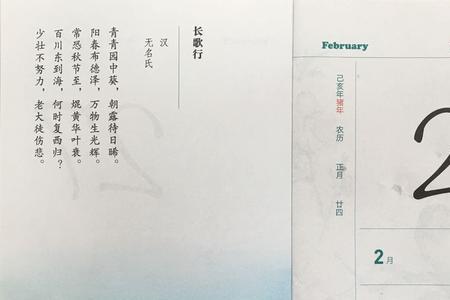 长歌行
汉
无名氏
青青园中葵，朝露待日晞。
阳春布德泽，万物生光辉。
常恐秋节至，焜黄华叶衰。
百川东到海，何时复西归？
少壮不努力，老大徒伤悲。
February
己亥年猪年 农历 正月 廿四
2月
2